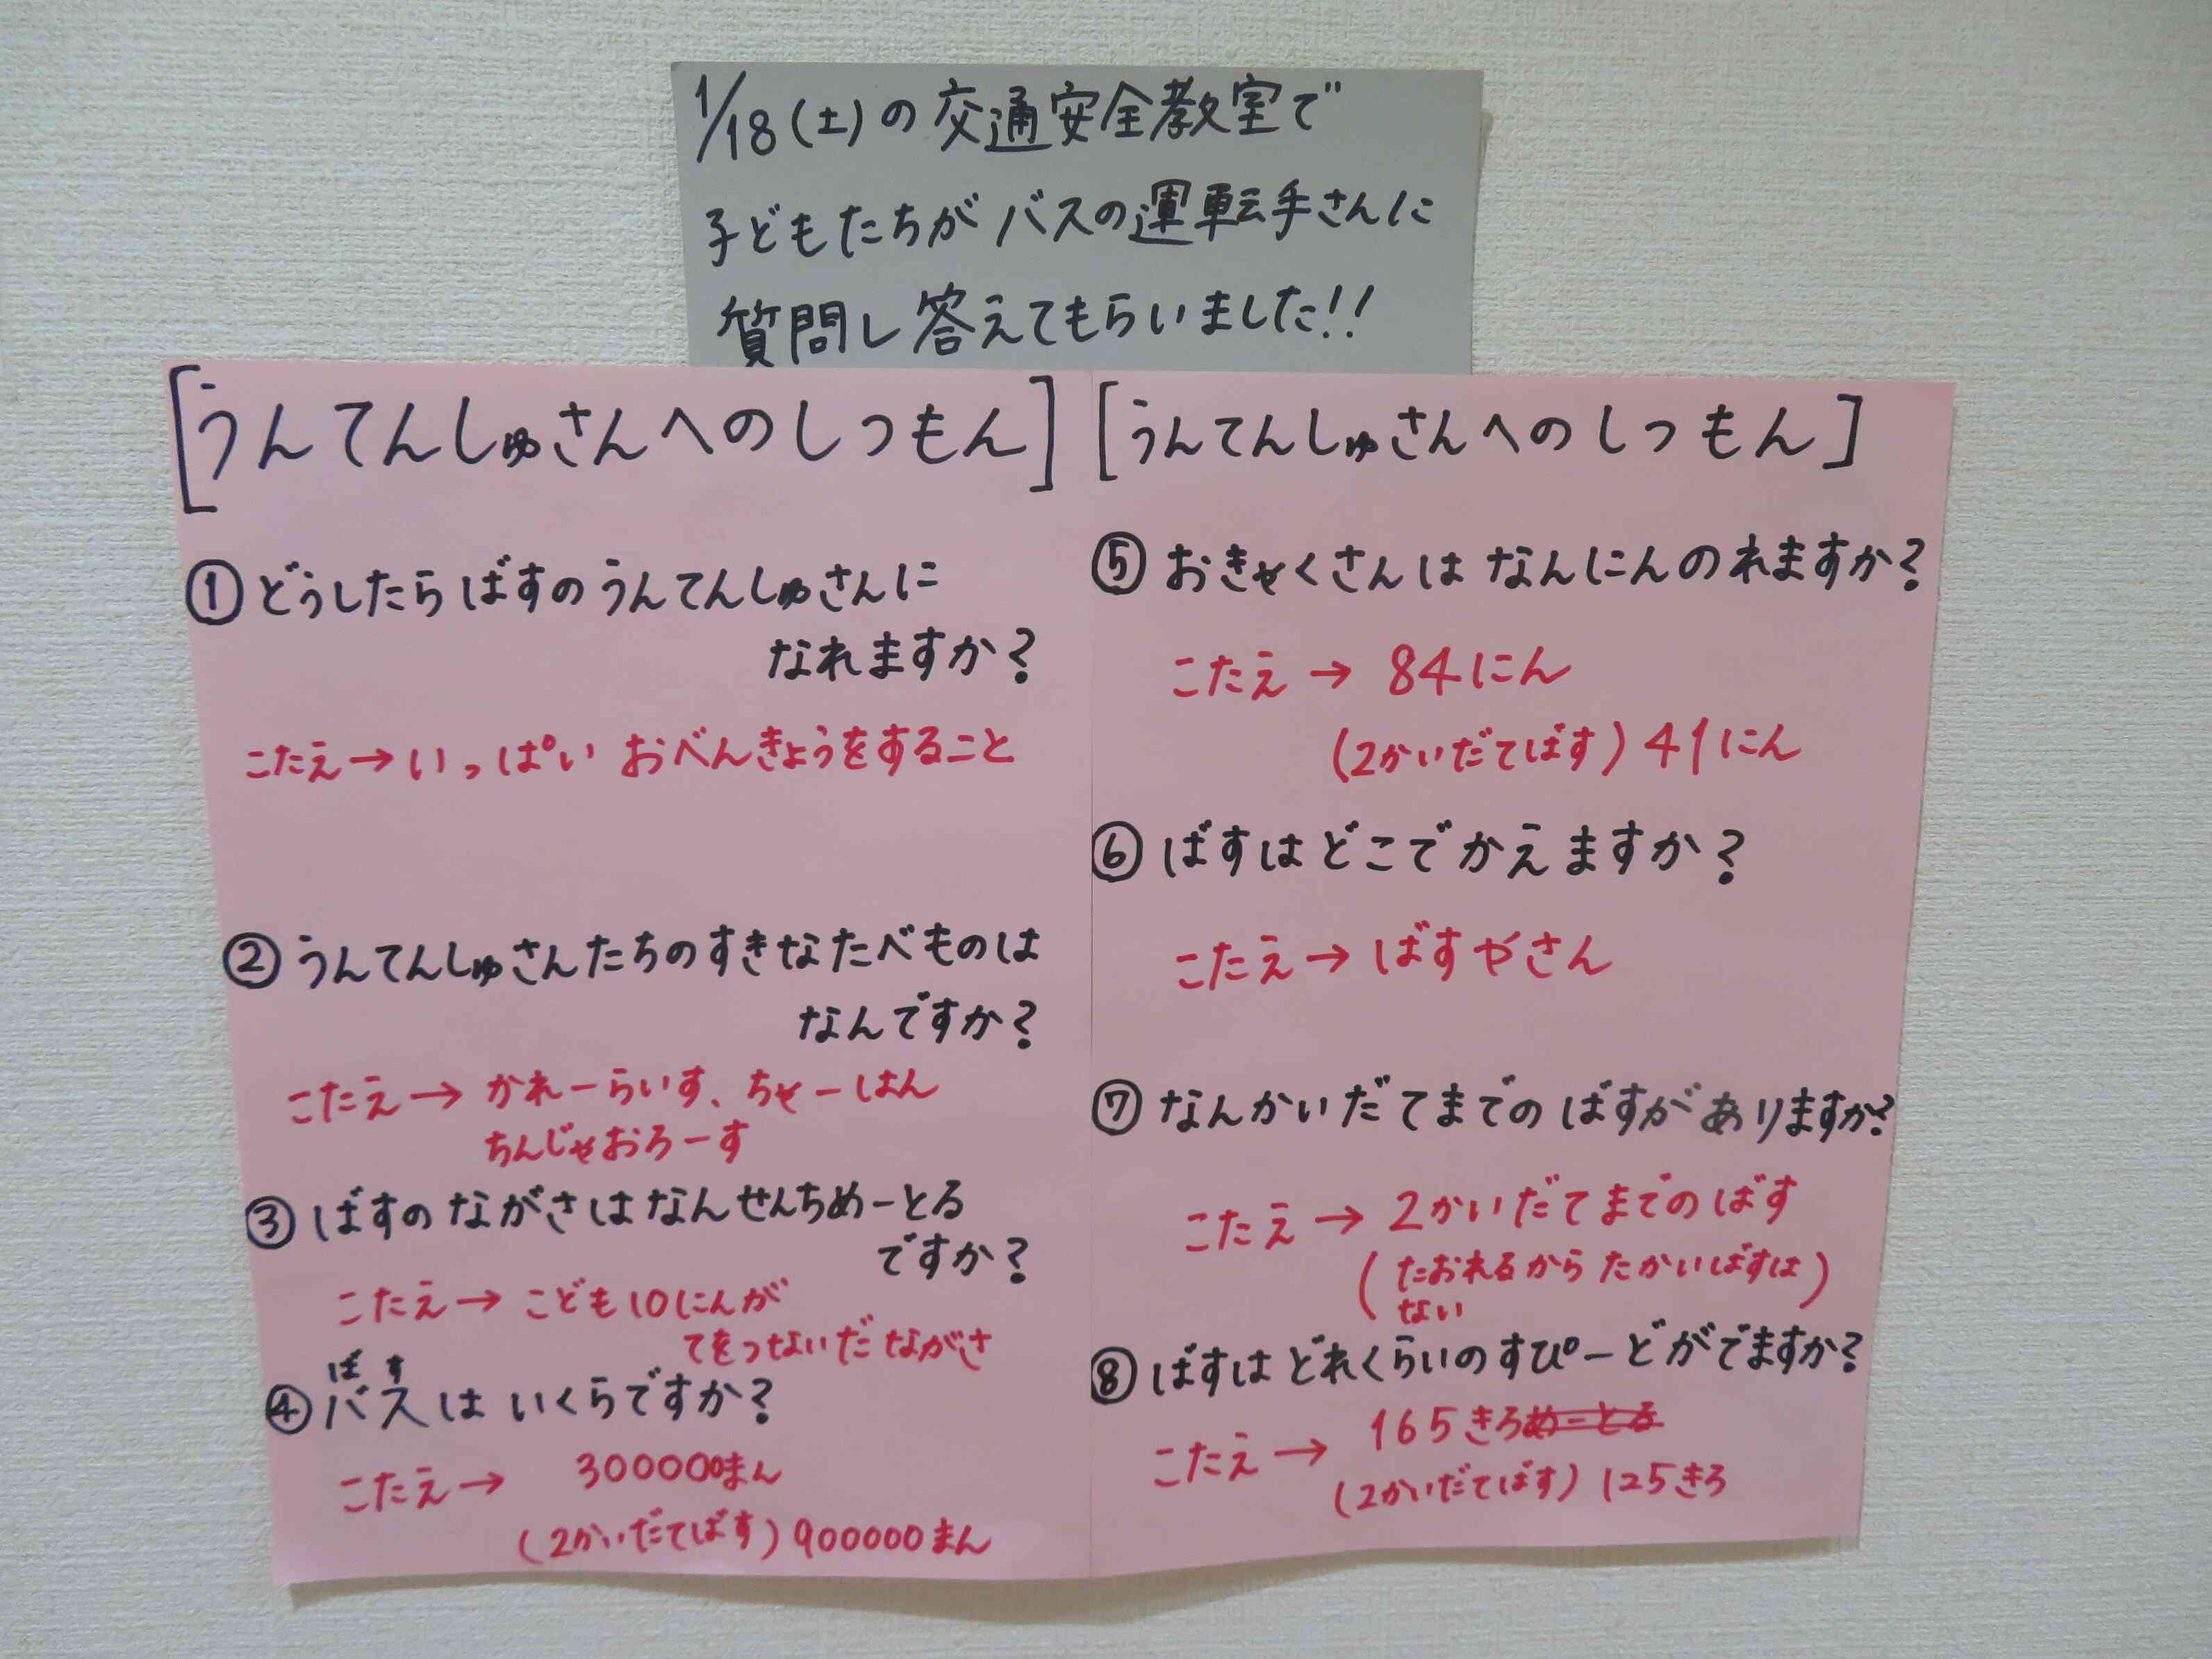 1/18(土)の交通安全教室で
子どもたちがバスの運転手さんに
質問し答えてもらいました!!
[うんてんしゅさんへのしつもん]
①どうしたらばすのうんてんしゅさんに
なれますか?
こたえ→いっぱいおべんきょうをすること
②うんてんしゅさんたちのすきなたべものは
なんですか?
こたえ→かれーらいす、ちゃーはん
ちんじゃおろーす
③ばすのながさはなんせんちめーとる
ですか?
こたえ→こども10にんが
てをつないだながさ
ばす
④バスはいくらですか?
こたえ→300000まん
(2かいだてばす)900000まん
[うんてんしゅさんへのしつもん]
⑤おきゃくさんはなんにんのれますか?
こたえ→84にん
(2かいだてばす)41にん
⑥ばすはどこでかえますか?
こたえ→ばすやさん
⑦なんかいだてまでのばすがありますか?
こたえ→2かいだてまでのばす
(たおれるからたかいばすは
ない)
⑧ばすはどれくらいのすぴーどがでますか?
こたえ→165きろめーとる
(2かいだてばす)125きろ